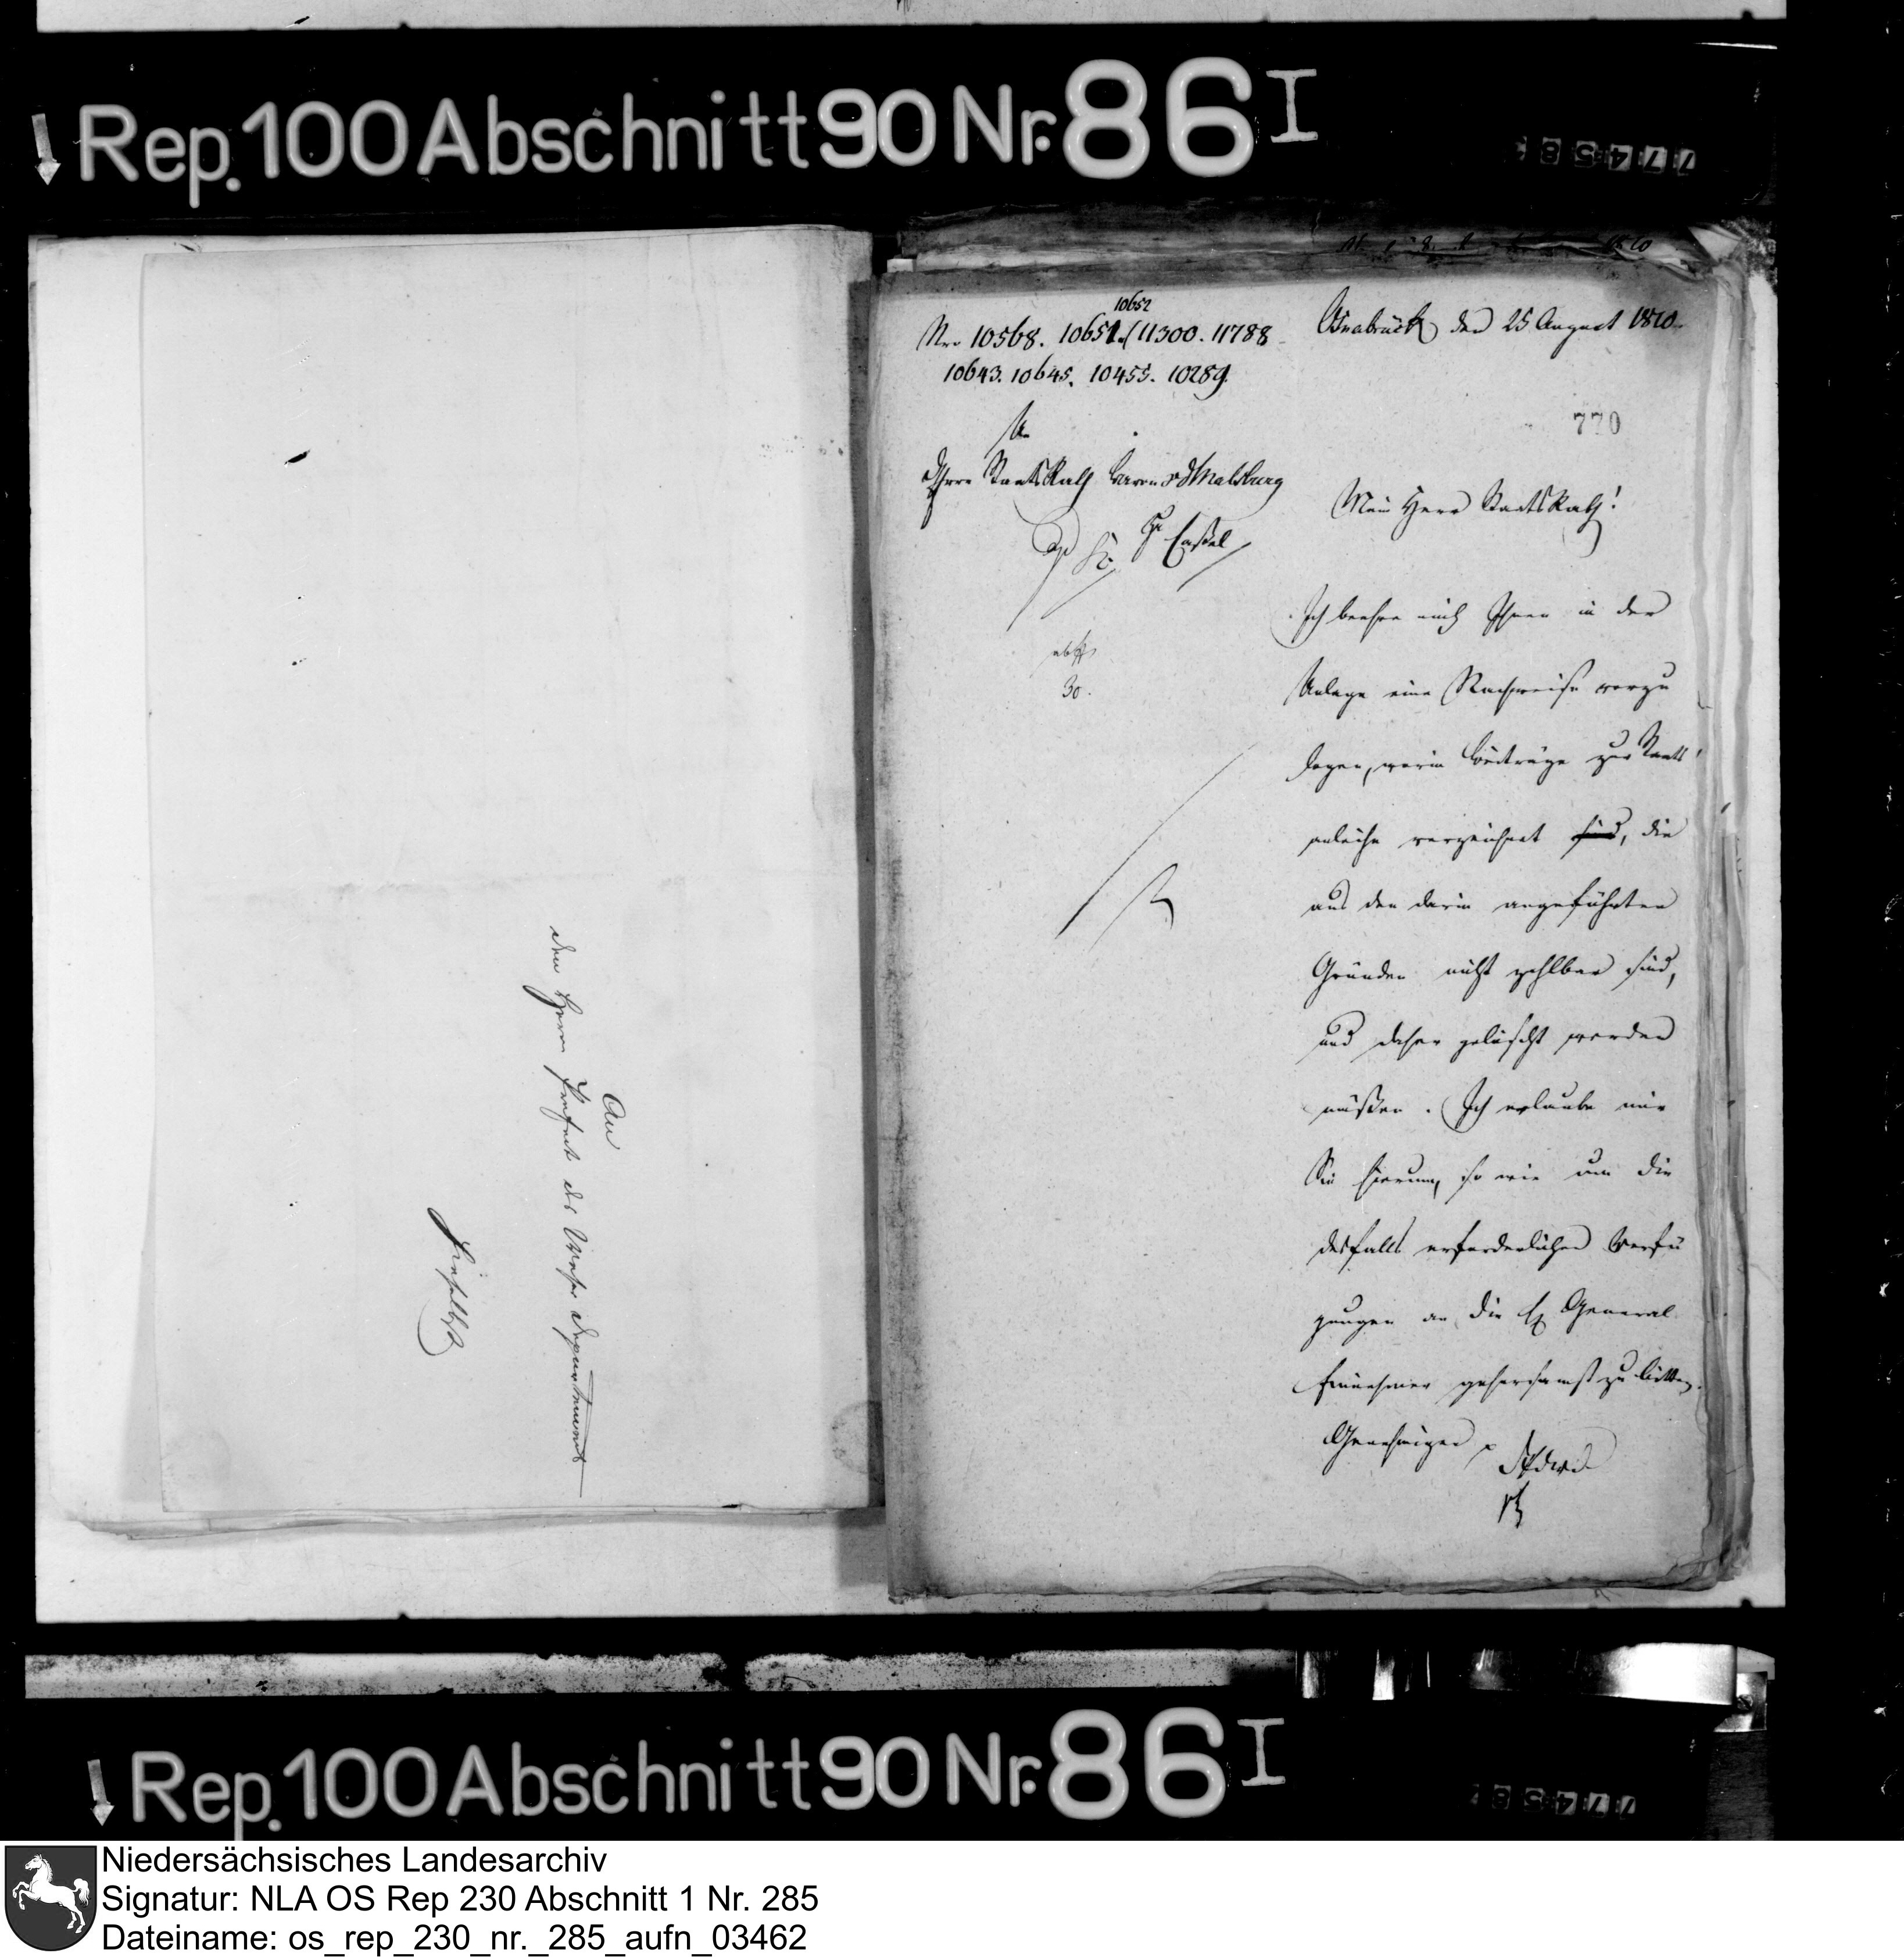 Rep. 100 Abschnitt 90 Nr. 86 I
77458
An
den Herrn Präfect des Weser Departements
hieselbst
10652
Nro 10568. 10651. 11300. 11788
10643. 10645. 10455. 10289.
Osnabrück den 25 August 1810.
770
An
Herrn StaatsRath Baron v d Malsburg
Cassel
Mein Herr StaatsRath!
30.
Ich beehre mich Ihnen in der
Anlage eine Nachweise vorzu
legen, worin Beiträge zur Staats
anleihe verzeichnet sind, die
aus den darin angeführten
Gründen nicht zahlbar sind,
und daher gelöscht werden
müßen. Ich erlaube mir
Sie hierum, so wie um die
desfalls erforderlichen Verfü
gungen an die General
Einnehmer gehorsamst zu bitten.
Genehmigen
Rep. 100 Abschnitt 90 Nr. 86 I
77458
Niedersächsisches Landesarchiv
Signatur: NLA OS Rep 230 Abschnitt 1 Nr. 285
Dateiname: os_rep_230_nr._285_aufn_03462